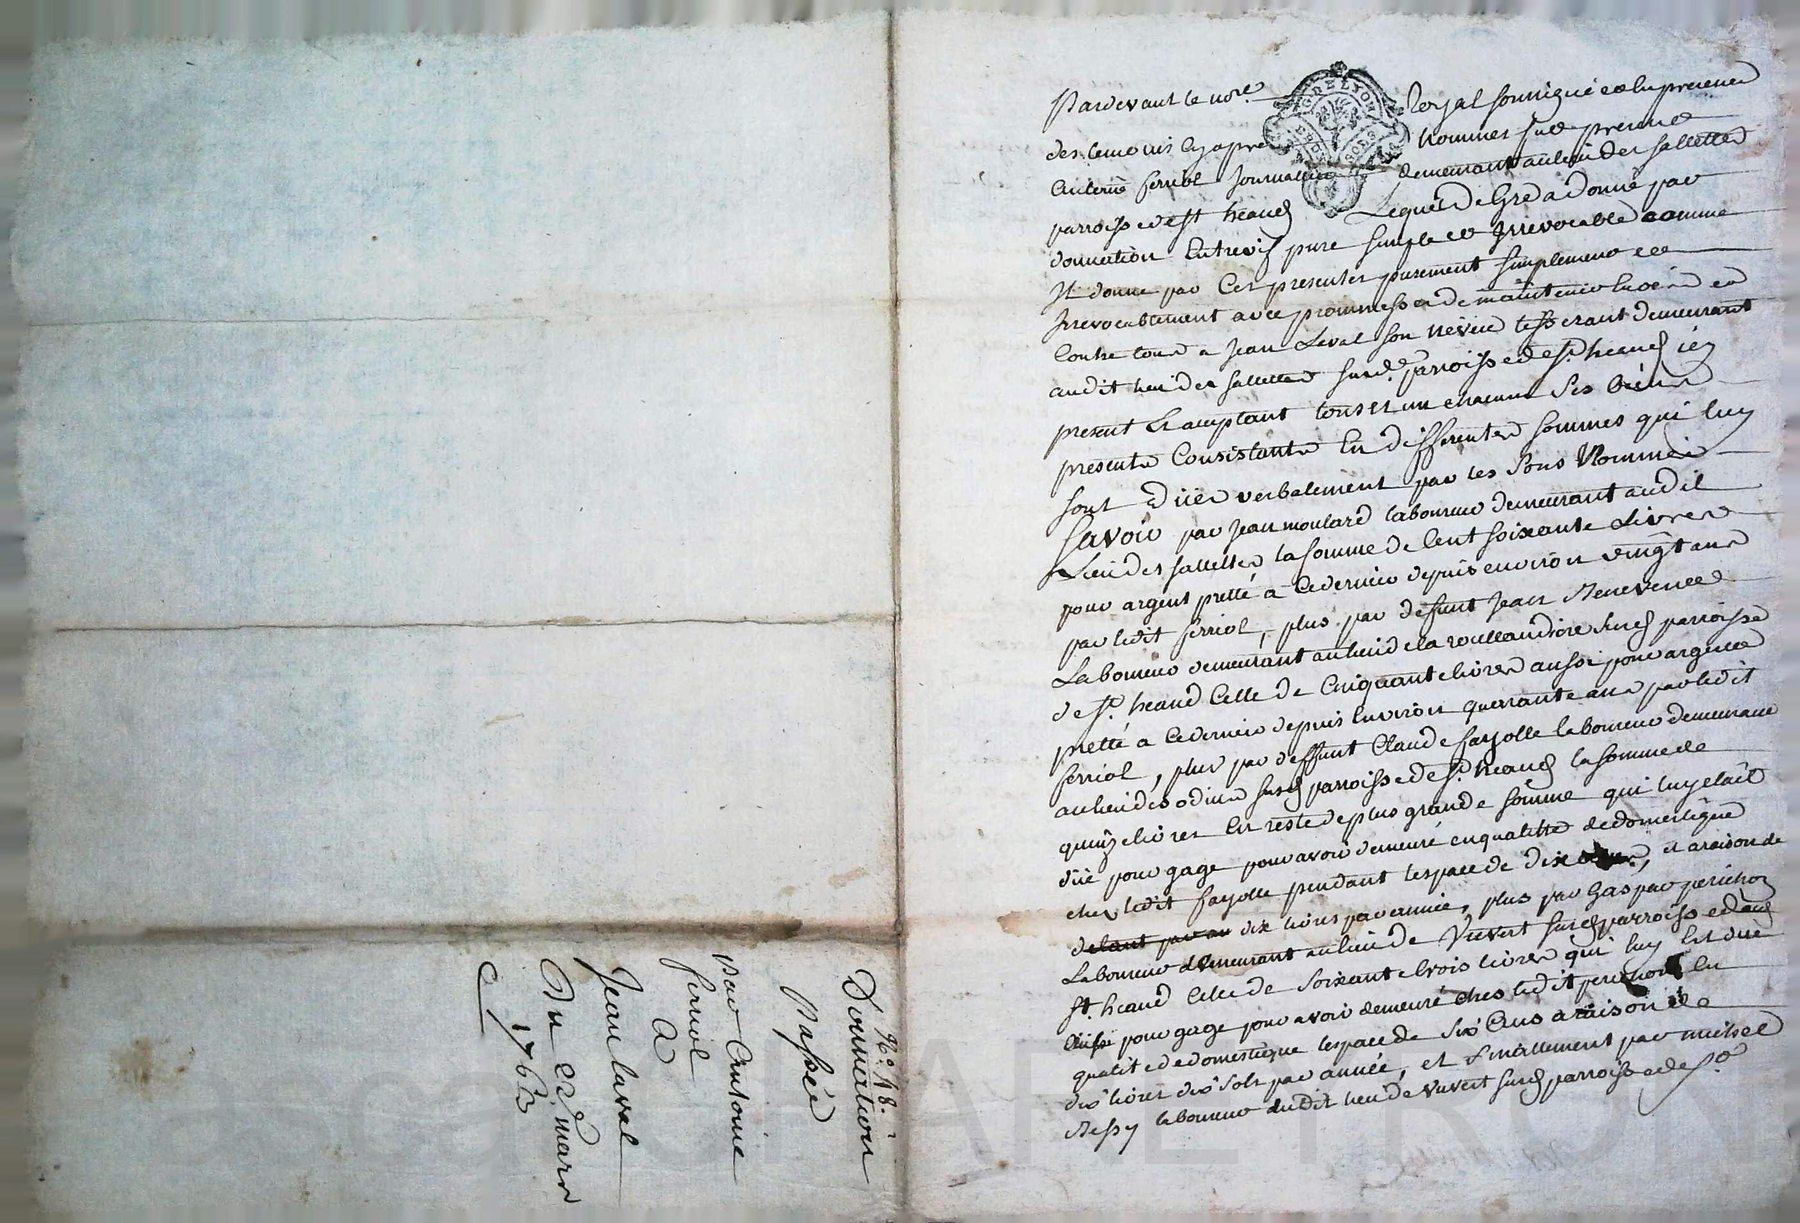 N.° 18.
Donnation
Passéé
par Antoine
ferriol
A
Jean laval
Du 22 mars
1763
G. DE LYON
Pardevant le nore. Royal soussigné et en presence
des temoins cy apres Nommes fut present
Antoine ferriol Journallier demeurant au lieu des sallettes
parroisse de st heand Lequel de Gré a donné par
donnation Entrevif pure simple et Irrevocable comme
Il donne par Ces presentes purement simplement et
Irrevocablement avec promesse de maintenir Envers et
Contre tous a Jean Laval son neveu tisserant demeurant
audit lieu des sallettes susd. parroisse de st. heand icy
present Et acceptant tous et un chacuns ses biens
presents Consistants En differentes sommes qui luy
sont düés verbalement par les sous Nommés
Savoir par Jean moulard laboureur demeurant audit
Lieu des sallettes la somme de Cent soixante Livres
pour argent pretté a ce dernier depuis environ vingt ans
par ledit ferriol, plus par defunt Jean
Laboureur demeurant au lieu de la roullandiere susd parroisse
de st. heand Celle de Cinquante livres aussi pour argent
pretté a ce dernier depuis Environ quarante ans par ledit
ferriol, plus par deffunt Claude fayolle laboureur demeurant
au lieu des odins susd parroisse de st. heand la somme de
quinze livres En reste de plus grande somme qui luy etait
düe pour gage pour avoir demeuré en qualitte de domestique
chez ledit fayolle pendant lespace de dix, et a raison de
dix livres par année, plus par Gaspar perichon
Laboureur demeurant au lieu de Vuvert susd parroisse dud
st. heand Celle de soixante trois livres qui luy Est düe
aussi pour gage pour avoir demeuré chez ledit perichon En
qualite de domestique lespace de six ans a raison de
dix livres dix sols par année, et finallement par michel
laboureur dudit lieu de vuvert susd parroisse de st.